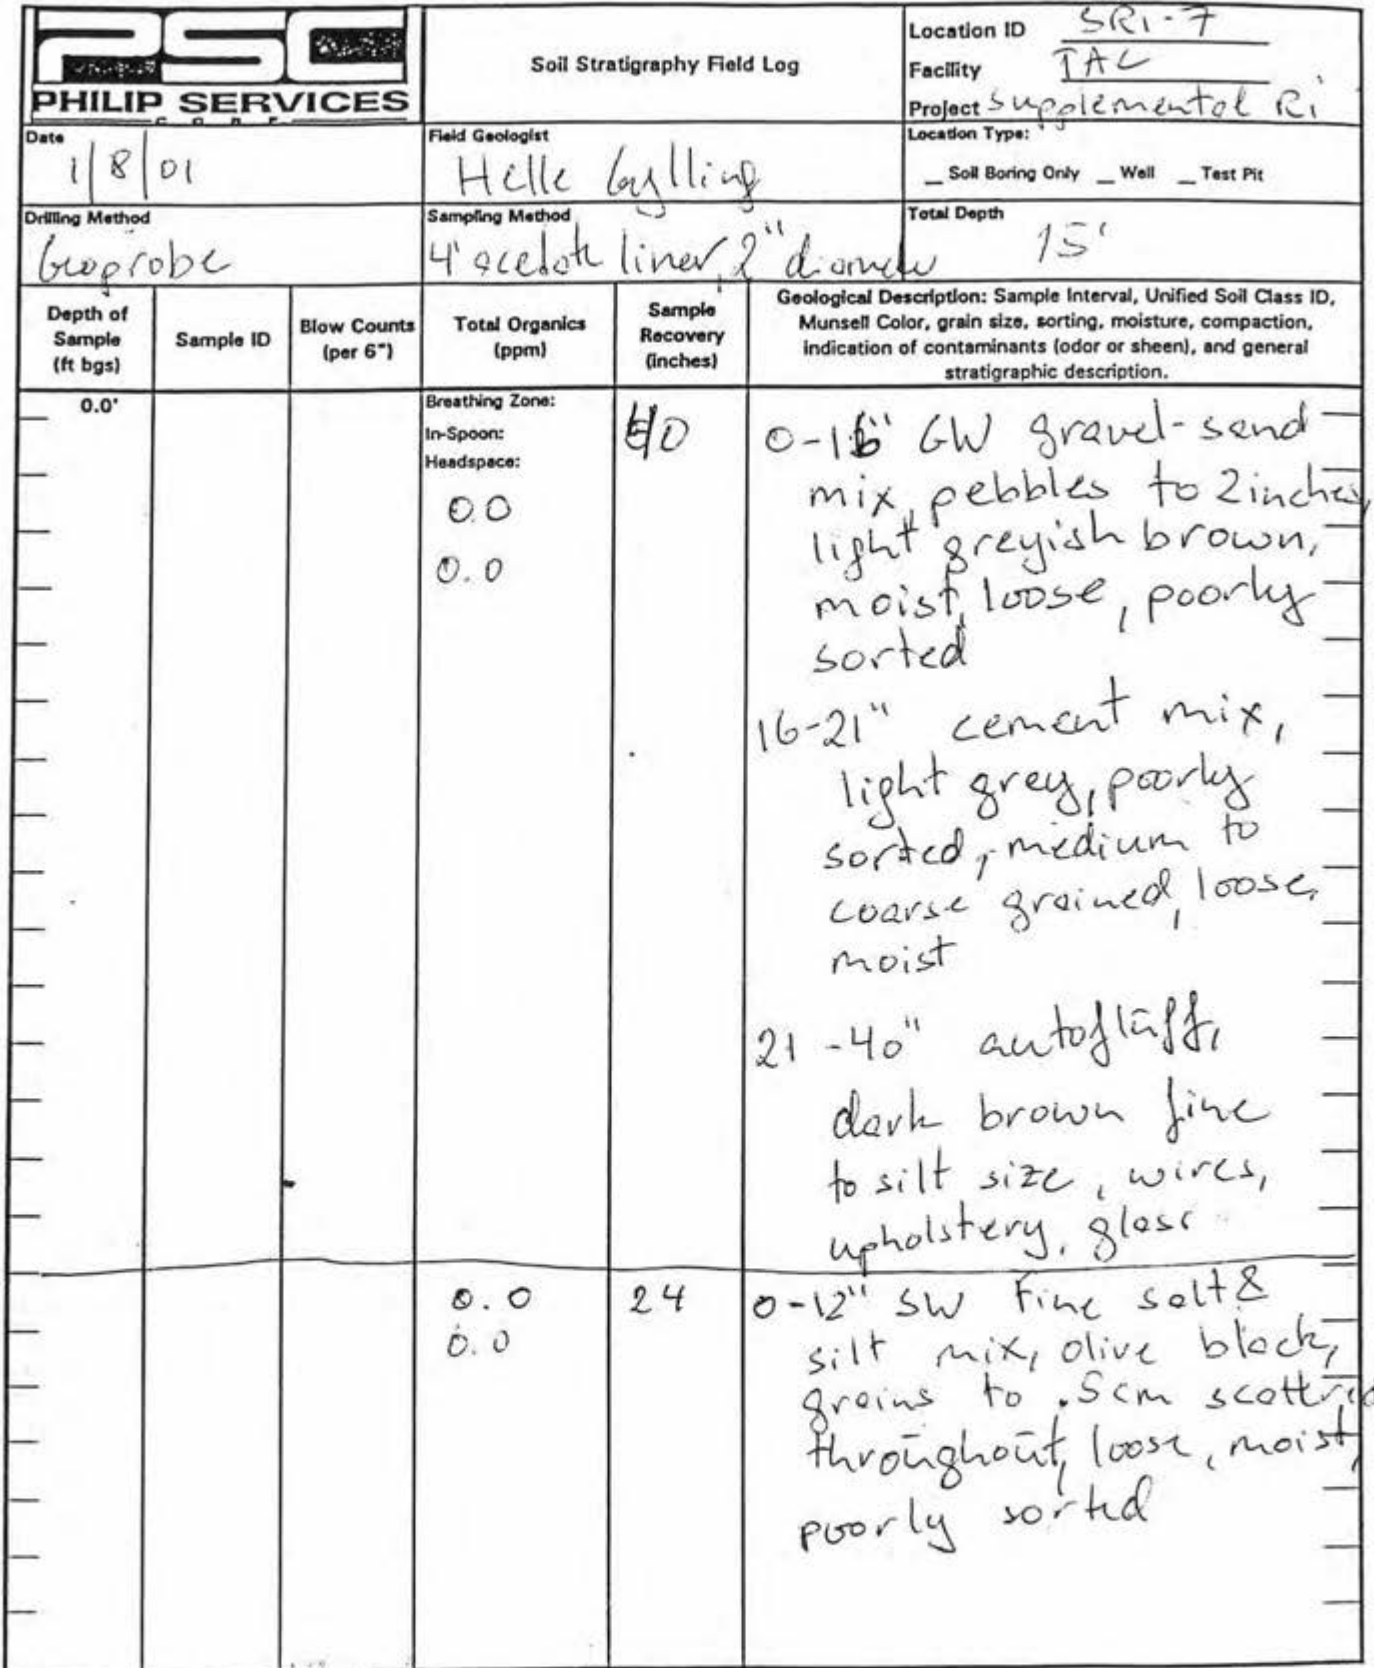 PSC
PHILIP SERVICES
CORP.
Soil Stratigraphy Field Log
Location ID SRI-7
Facility TAC
Project Supplemental Ri
Date
1/8/01
Field Geologist
Helle Gylling
Location Type:
_ Soil Boring Only _ Well _ Test Pit
Drilling Method
Geoprobe
Sampling Method
4' acetate liner, 2" diameter
Total Depth
15'
Depth of
Sample
(ft bgs)
Sample ID
Blow Counts
(per 6")
Total Organics
(ppm)
Sample
Recovery
(inches)
Geological Description: Sample Interval, Unified Soil Class ID,
Munsell Color, grain size, sorting, moisture, compaction,
indication of contaminants (odor or sheen), and general
stratigraphic description.
0.0'
Breathing Zone:
In-Spoon:
Headspace:
0.0
0.0
40
0-16" GW gravel-sand
mix, pebbles to 2inches,
light greyish brown,
moist, loose, poorly
sorted
16-21" cement mix,
light grey, poorly
sorted, medium to
coarse grained, loose,
moist
21-40" autofluff,
dark brown fine
to silt size, wires,
upholstery, glass
0.0
0.0
24
0-12" SW Fine salt &
silt mix, olive black,
grains to .5cm scattered
throughout, loose, moist,
poorly sorted